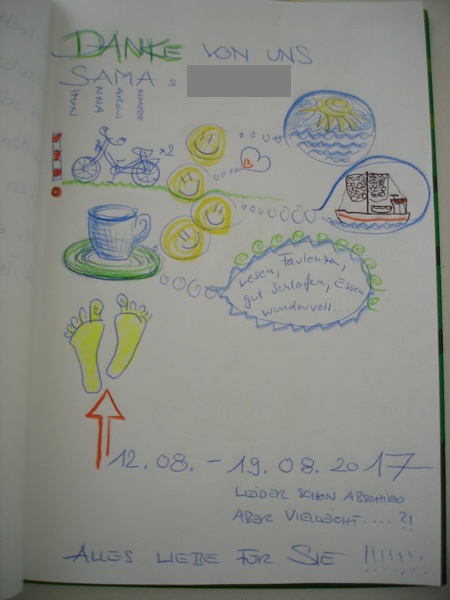 DANKE VON UNS
SAMA s
IMON
NNA
x2
Lesen, Faulenzen,
gut schlafen, Essen
wundervoll.
12.08. - 19.08.2017
LEIDER SCHON ABSCHIED
ABER VIELLEICHT.....?!
ALLES LIEBE FÜR SIE !!!!!!